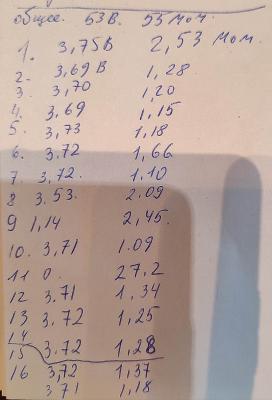 общее. 53В. 55 мом.
1. 3,75В 2,53 мом.
2. 3,69 В 1,28
3. 3,70 1,20
4. 3,69 1,15
5. 3,73 1,18
6. 3.72 1,66
7. 3,72. 1.10
8 3.53. 2.09
9 1,14 2,45.
10. 3,71 1.09
11 0. 27,2
12 3.71 1.34
13 3.72 1,25
14
15 3.72 1,28
16 3,72 1,37
3.71 1,18